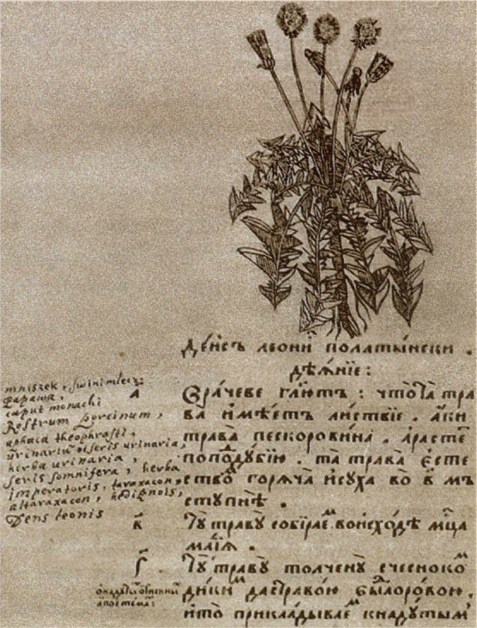 Денсъ леони полатынски .
дѣянїе :
mniszek, swini mlecz:
caput monachi
Rostrum porcinum,
aphaca theophrasti,
urinaria, seris urinaria,
herba urinaria,
seris somnifera, herba
imperatoris, taraxacon,
altaraxacon, hedignois,
Dens leonis
а҃ Врачеве гл҃ютъ : что та тра
ва имѣетъ листвїе . аки
трава пескоровина . арасте
поподубїю . та трава есте
ство горяча исуха во в м
ступнѣ .
в҃ Ту траву собирае воисходѣ мца
маїя .
г҃ Ту траву толчену счесноко
дики дастравою
ито прикладывае кнадутым